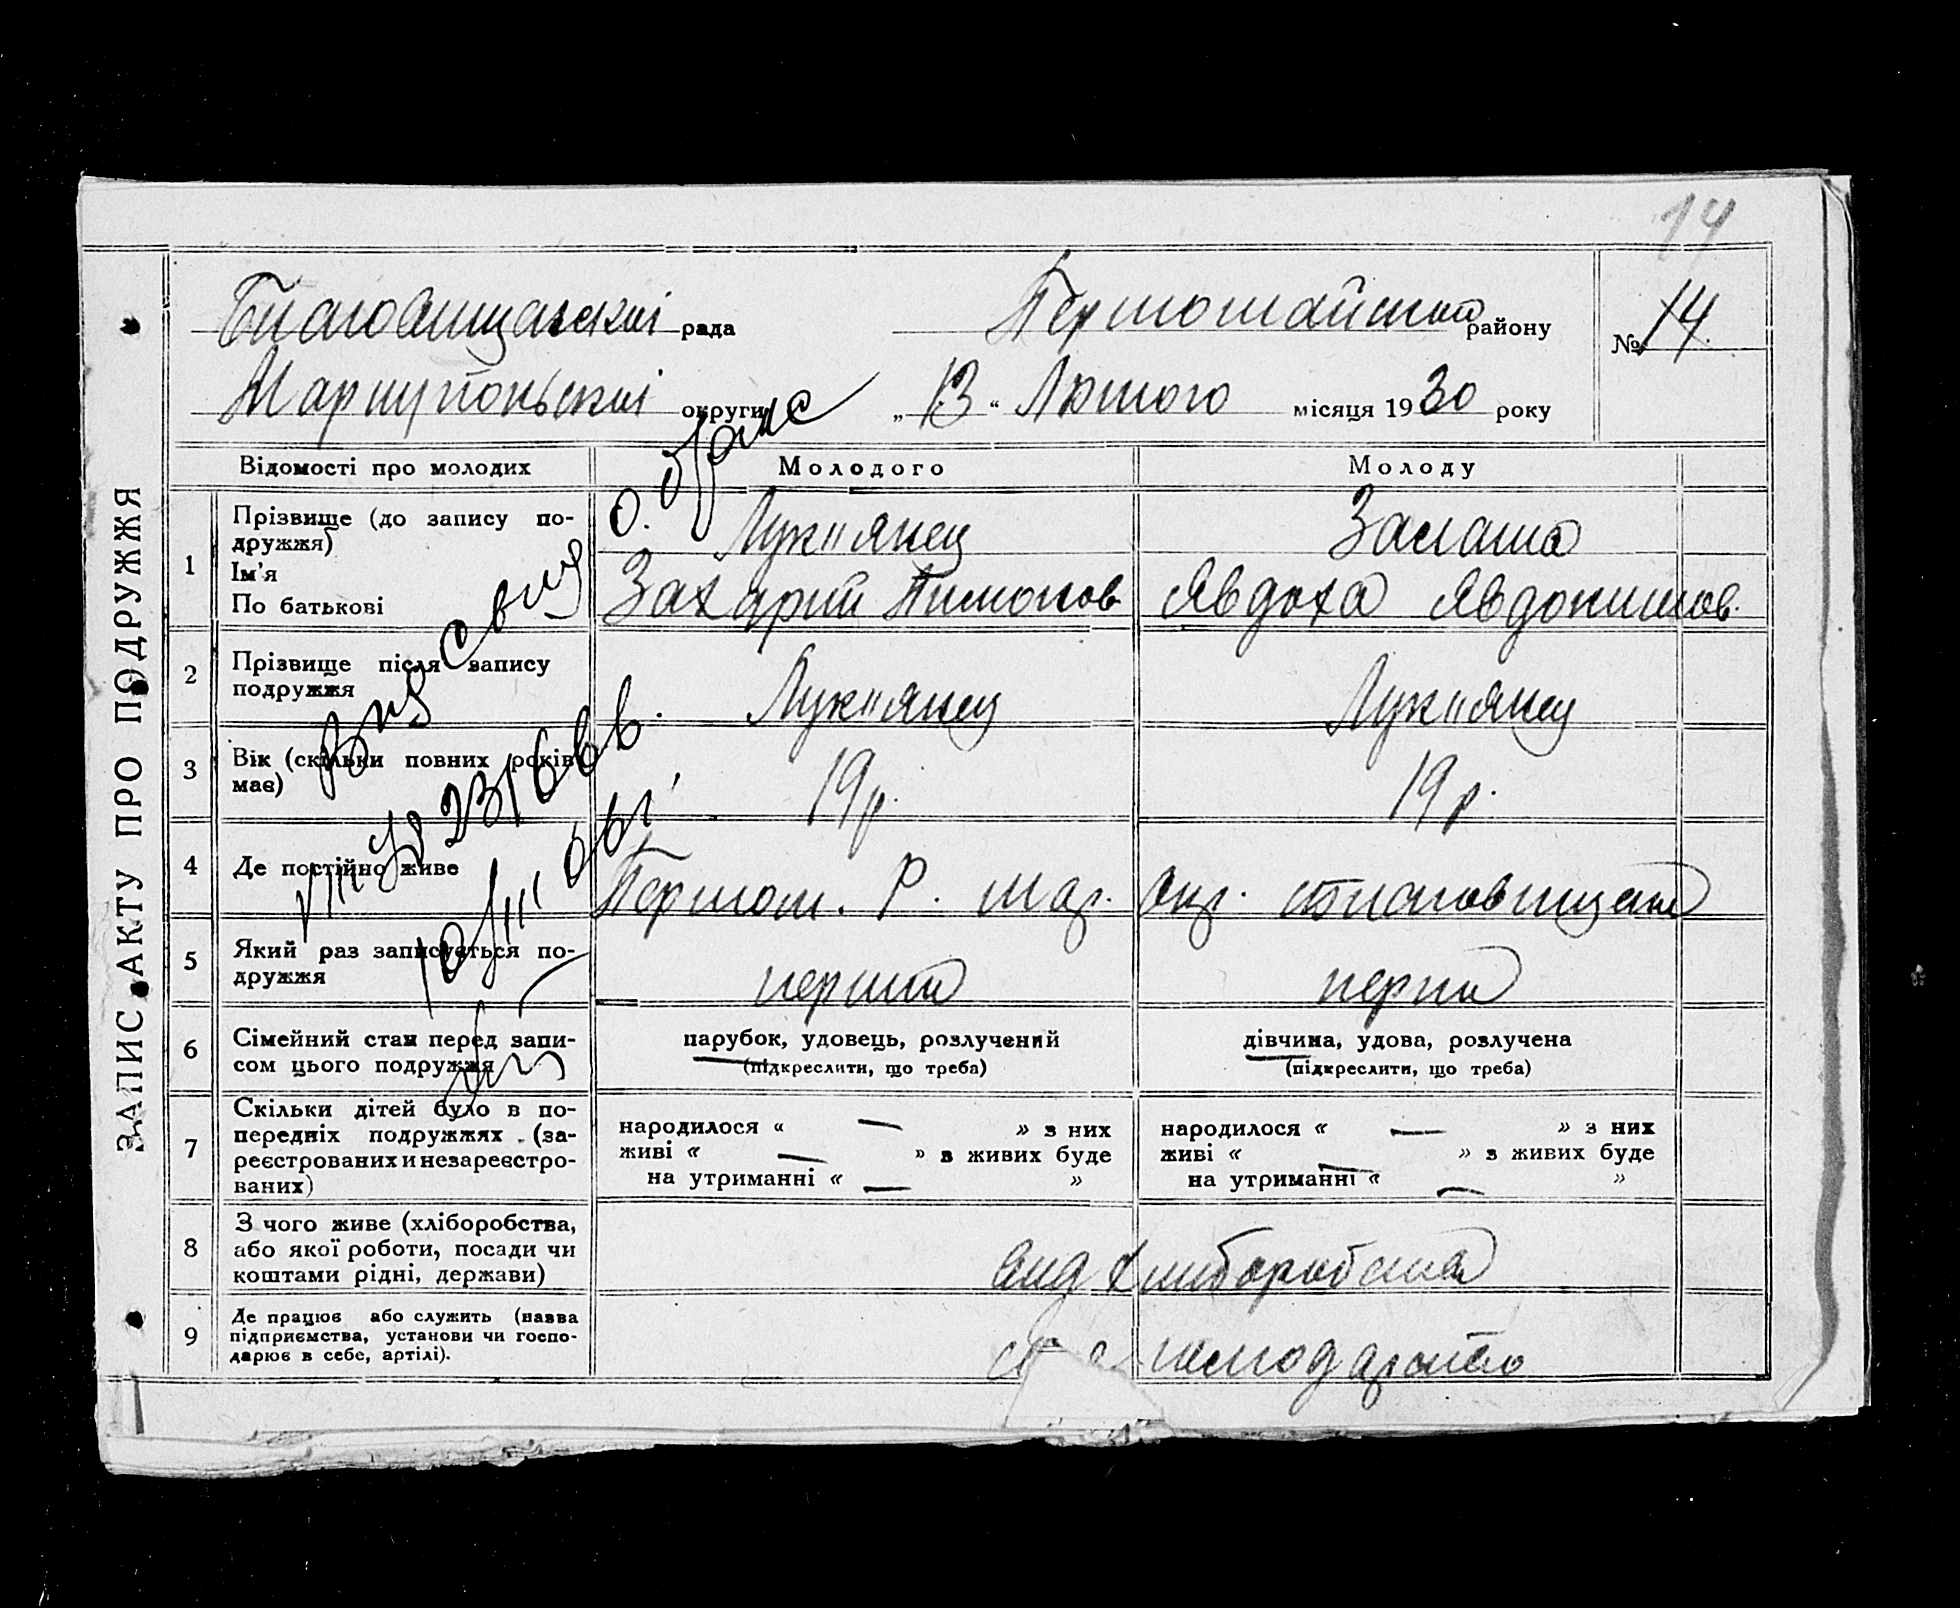 14
Благовищенскиі рада Першомайский району №14.
Мариупольскиі округи „13“ Лютого місяця 1930 року
ЗАПИС АКТУ ПРО ПОДРУЖЖЯ
Відомості про молодих Молодого Молоду
1 Прізвище (до запису по-
дружжя) Лук"янец
Ім'я
По батькові Захарий Явдоха Явдокимов.
2 Прізвище після запису
подружжя Лук"янец Лук"янец
3 Вік (скільки повних років
має) 19 р. 19 р.
4 Де постійно живе Першом. Р. Мар. Окр.
5 Який раз записується по-
дружжя перший перши
6 Сімейний стан перед запи-
сом цього подружжя
парубок, удовець, розлучений
(підкреслити, що треба)
дівчина, удова, розлучена
(підкреслити, що треба)
7 Скільки дітей було в по-
передніх подружжях (за-
реєстрованих и незареєстро-
ваних)
народилося « — » з них
живі « — » з живих буде
на утриманні « — »
народилося « — » з них
живі « — » з живих буде
на утриманні « — »
8 З чого живе (хліборобства,
або якої роботи, посади чи
коштами рідні, держави)
вид хлиборобства
9 Де працює або служить (назва
підприємства, установи чи госпо-
дарює в себе, артілі).